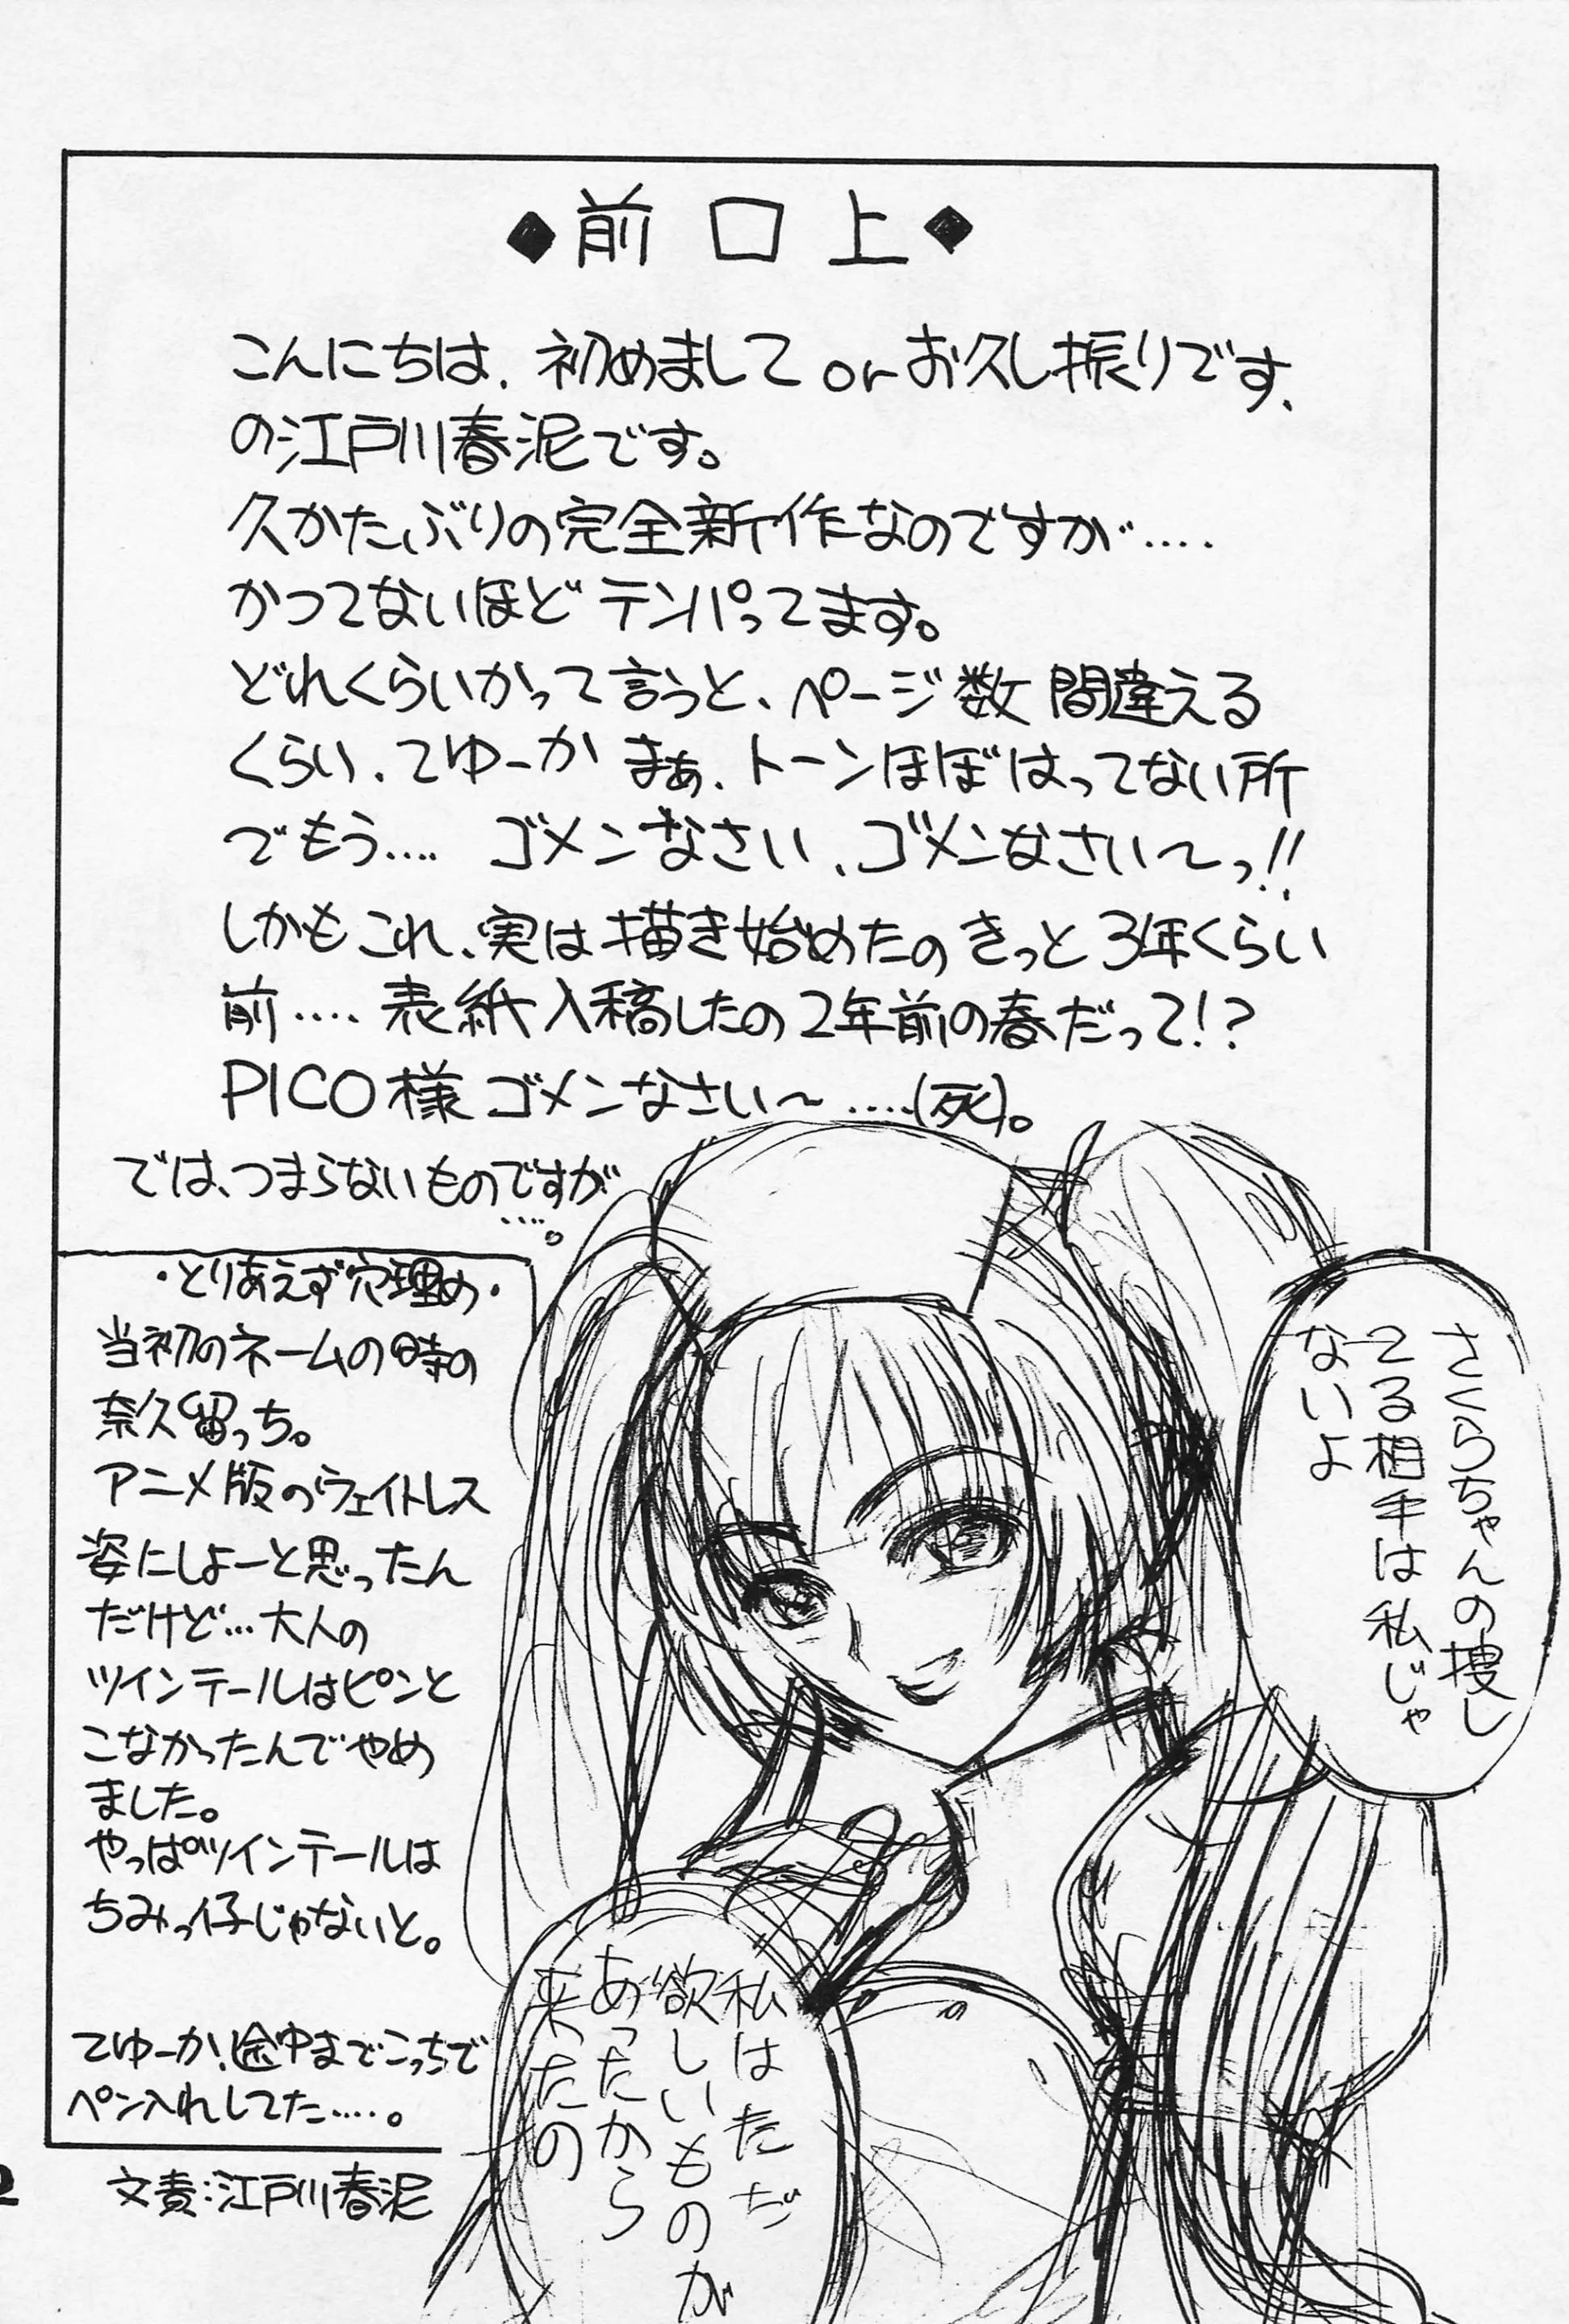 ◆前口上◆
こんにちは、初めましてorお久し振りです、
の江戸川春泥です。
久かたぶりの完全新作なのですが‥‥
かつてないほどテンパってます。
どれくらいかって言うと、ページ数間違える
くらい、てゆーかまぁ、トーンほぼはってない所
でもう‥‥ ゴメンなさい、ゴメンなさい〜っ!!
しかもこれ、実は描き始めたのきっと3年くらい
前‥‥表紙入稿したの2年前の春だって!?
PICO様ゴメンなさい〜‥‥(死)。
では、つまらないものですが
‥‥。
・とりあえず穴埋め・
当初のネームの時の
奈久留っち。
アニメ版のウェイトレス
姿にしよーと思ったん
だけど…大人の
ツインテールはピンと
こなかったんでやめ
ました。
やっぱツインテールは
ちみっ仔じゃないと。
てゆーか、途中までこっちで
ペン入れしてた‥‥。
文責:江戸川春泥
さくらちゃんの捜し
てる相手は私じゃ
ないよ
私はただ
欲しいものが
あったから
来たの
2